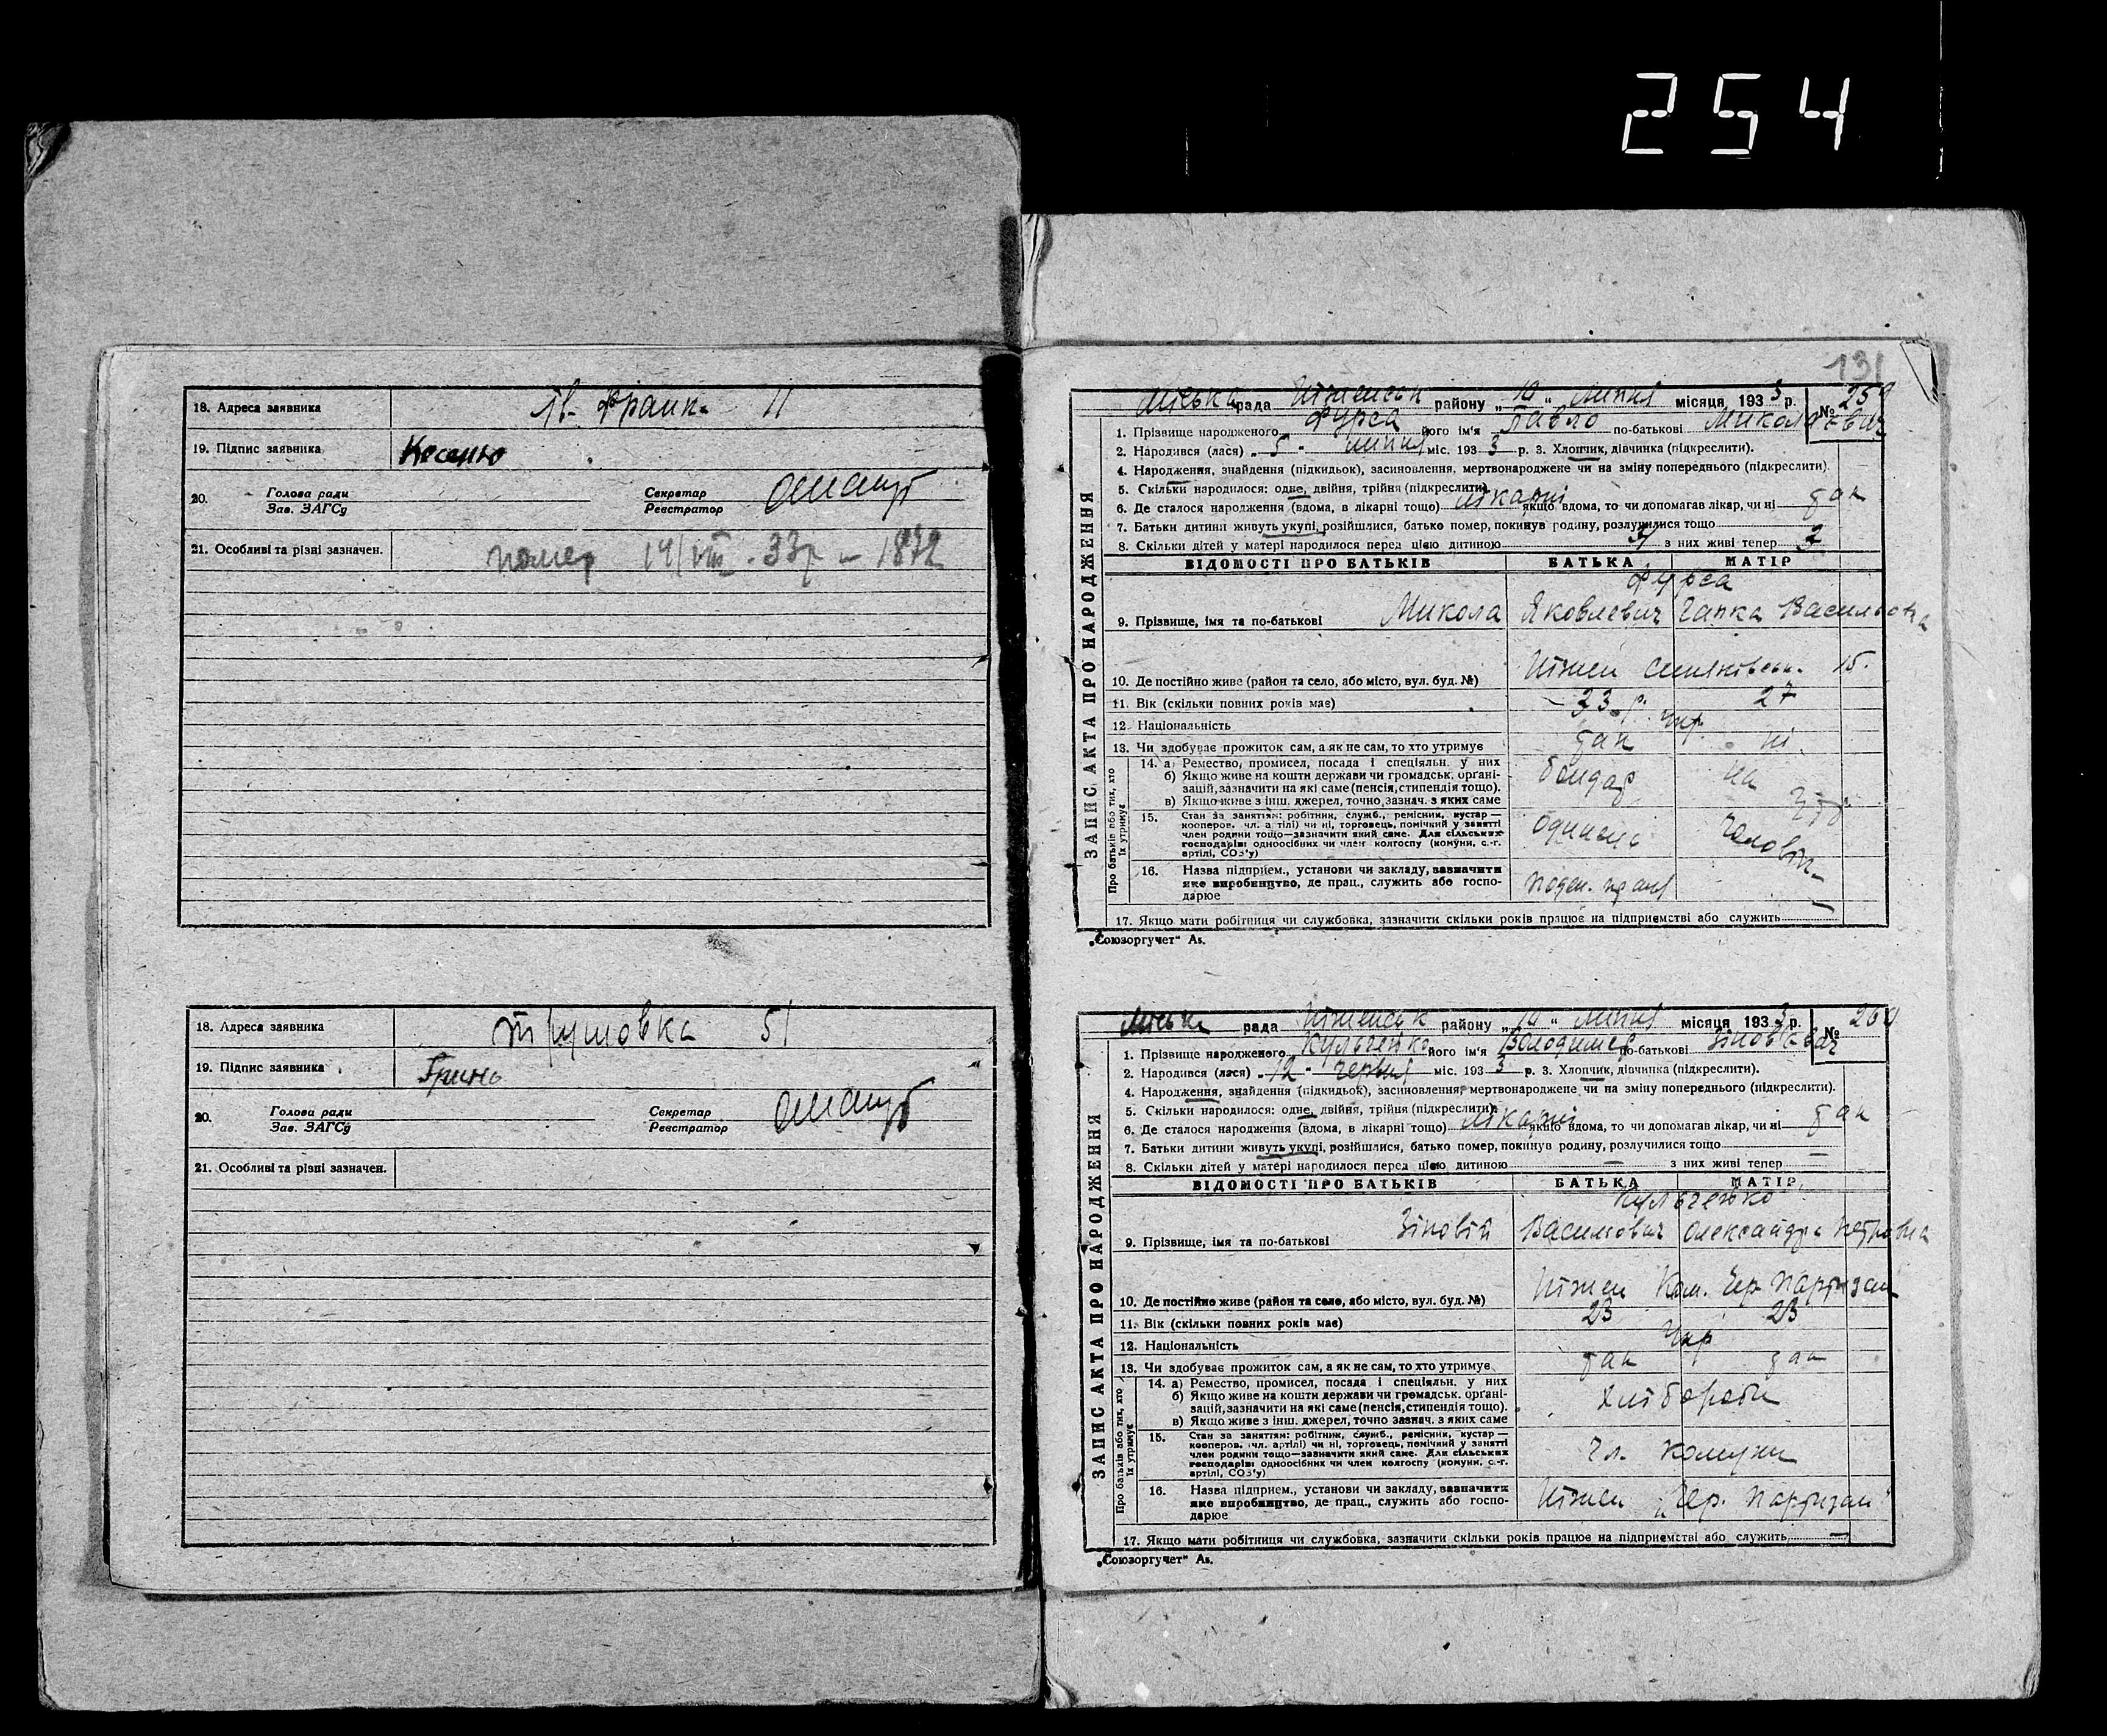 254
18. Адреса заявника Ів. Франк. 11
19. Підпис заявника
20. Голова ради Секретар
Зав. ЗАГСд Реєстратор
21. Особливі та різні зазначен. помер 14/VIII - 33р - 1872
18. Адреса заявника 51
19. Підпис заявника
20. Голова ради Секретар
Зав. ЗАГСд Реєстратор
21. Особливі та різні зазначен.
131
ЗАПИС АКТА ПРО НАРОДЖЕННЯ
Міська рада Ніженськ району „10" липня місяця 1933 р. №
1. Прізвище народженого Фурса його ім'я Павло по-батькові Миколаєвич
2. Народився (лася) „5" липня міс. 1933 р. 3. Хлопчик, дівчинка (підкреслити).
4. Народження, знайдення (підкидьок), засиновлення, мертвонароджене чи на зміну попереднього (підкреслити).
5. Скільки народилося: одне, двійня, трійня (підкреслити).
6. Де сталося народження (вдома, в лікарні тощо) лікарні якщо вдома, то чи допомагав лікар, чи ні так
7. Батьки дитини живуть укупі, розійшлися, батько помер, покинув родину, розлучилися тощо
8. Скільки дітей у матері народилося перед цією дитиною з них живі тепер 2
ВІДОМОСТІ ПРО БАТЬКІВ БАТЬКА МАТІР
Фурса
9. Прізвище, імя та по-батькові Микола Яковлевич Гапка Васильовна
10. Де постійно живе (район та село, або місто, вул. буд. №) Ніжен 15.
11. Вік (скільки повних років має) 33 р. 27
12. Національність укр.
13. Чи здобуває прожиток сам, а як не сам, то хто утримує так ні
Про батьків або тих, хто їх утримує
14. а) Ремество, промисел, посада і спеціяльн. у них бондар на
б) Якщо живе на кошти держави чи громадськ. орґані-
зацій, зазначити на які саме (пенсія, стипендія тощо).
в) Якщо живе з інш. джерел, точно зазнач. з яких саме
15. Стан за занятіям: робітник, служб., ремісник, кустар—
кооперов. чл. артілі) чи ні, торговець, помічний у занятті
член родини тощо—зазначити який саме. Для сільських
господарів: одноосібних чи член колгоспу (комуни, с.-г.
артілі, СОЗ'у)
16. Назва підприєм., установи чи закладу, зазначити
яке виробництво, де прац., служить або госпо-
дарює
17. Якщо мати робітниця чи службовка, зазначити скільки років працює на підприємстві або служить —
„Союзоргучет" Ав.
ЗАПИС АКТА ПРО НАРОДЖЕННЯ
Міська рада Ніженськ району „10" липня місяця 1933 р. № 260
1. Прізвище народженого Кульченко його ім'я Володимер по-батькові Зіновієвич
2. Народився (лася) „12" червня міс. 1933 р. 3. Хлопчик, дівчинка (підкреслити).
4. Народження, знайдення (підкидьок), засиновлення, мертвонароджене чи на зміну попереднього (підкреслити).
5. Скільки народилося: одне, двійня, трійня (підкреслити).
6. Де сталося народження (вдома, в лікарні тощо) лікарні якщо вдома, то чи допомагав лікар, чи ні так
7. Батьки дитини живуть укупі, розійшлися, батько помер, покинув родину, розлучилися тощо
8. Скільки дітей у матері народилося перед цією дитиною — з них живі тепер —
ВІДОМОСТІ ПРО БАТЬКІВ БАТЬКА МАТІР
Кульченко
9. Прізвище, імя та по-батькові Зіновій Василович Олександра Петровна
10. Де постійно живе (район та село, або місто, вул. буд. №) Ніжен Ком. Чер. Партизан
11. Вік (скільки повних років має) 23 23
12. Національність Укр
13. Чи здобуває прожиток сам, а як не сам, то хто утримує так так
Про батьків або тих, хто їх утримує
14. а) Ремество, промисел, посада і спеціяльн. у них
б) Якщо живе на кошти держави чи громадськ. орґані-
зацій, зазначити на які саме (пенсія, стипендія тощо). хлібороби
в) Якщо живе з інш. джерел, точно зазнач. з яких саме
15. Стан за занятіям: робітник, служб., ремісник, кустар—
кооперов. чл. артілі) чи ні, торговець, помічний у занятті
член родини тощо—зазначити який саме. Для сільських
господарів: одноосібних чи член колгоспу (комуни, с.-г. чл. комуни
артілі, СОЗ'у)
16. Назва підприєм., установи чи закладу, зазначити
яке виробництво, де прац., служить або госпо- Ніжен „Чер. Партизан"
дарює
17. Якщо мати робітниця чи службовка, зазначити скільки років працює на підприємстві або служить —
„Союзоргучет" Ав.